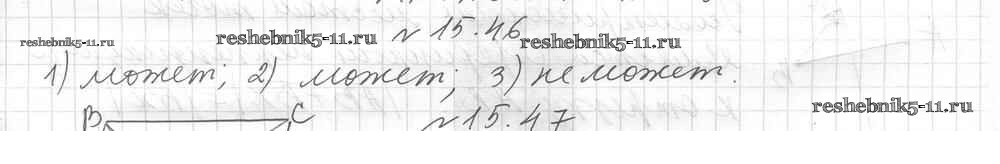 № 15.46
reshebnik5-11.ru reshebnik5-11.ru reshebnik5-11.ru
1) может; 2) может; 3) не может.
reshebnik5-11.ru
B C № 15.47